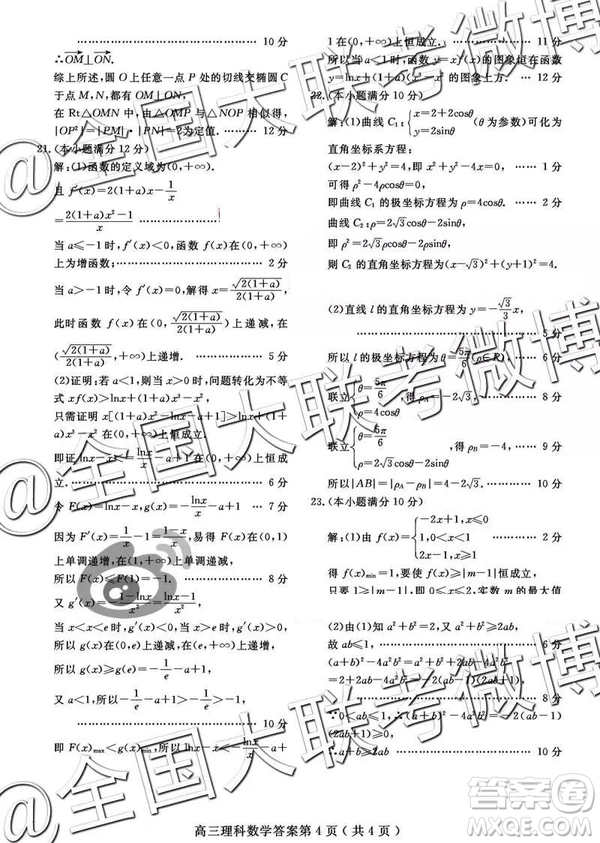 ………………………… 10 分
∴OM⊥ON.
综上所述,圆 O 上任意一点 P 处的切线交椭圆 C
于点 M,N,都有 OM⊥ON.
在 Rt△OMN 中,由△OMP 与△NOP 相似得,
|OP|²=|PM|·|PN|=2为定值. ……… 12 分
21.(本小题满分 12 分)
解:(1)函数的定义域为(0,+∞).
且 f′(x)=2(1+a)x−1/x
=2(1+a)x²−1/x
当 a≤−1 时,f′(x)<0,函数 f(x)在(0,+∞)
上为增函数; ………………… 2 分
当 a>−1 时,令 f′(x)=0,解得 x=√2(1+a)/2(1+a),
此时函数 f(x)在(0,√2(1+a)/2(1+a))上递减,在
(√2(1+a)/2(1+a),+∞)上递增. ……… 5 分
(2)证明:若 a<1,则当 x>0 时,问题转化为不等
式 xf(x)>lnx+(1+a)x³−x²,
只需证明 x[(1+a)x²−lnx−a+1]>lnx+(1+
a)x³−x² 在(0,+∞)上恒成立.
即证 lnx−x<−lnx/x−a+1 在(0,+∞)上恒成
立. ………………… 6 分
令 F(x)=lnx−x,g(x)=−lnx/x−a+1 … 7 分
因为 F′(x)=1/x−1=1−x/x,易得 F(x)在(0,1)
上单调递增,在(1,+∞)上单调递减,
所以 F(x)≤F(1)=−1. ………… 8 分
又 g′(x)=−1−lnx/x²=lnx−1/x²,
当 0<x<e 时,g′(x)<0;当 x>e 时,g′(x)>0,
所以 g(x)在(0,e)上递减,在(e,+∞)上递增,
所以 g(x)≥g(e)=−1/e−a+1.
又 a<1,所以−1/e−a+1>−1/e>−1,
………………… 10 分
即 F(x)max<g(x)min,所以 lnx−x<−lnx/x−a+
1 在(0,+∞)上恒成立. ………… 11 分
所以当 a<1 时,函数 y=xf(x)的图象恒在函数
y=lnx+(1+a)x³−x² 的图象上方. … 12 分
22.(本小题满分 10 分)
解:(1)曲线 C₁:{x=2+2cosθ
y=2sinθ (θ 为参数)可化为
直角坐标系方程:
(x−2)²+y²=4,即 x²+y²−4x=0. … 1 分
可得 ρ²−4ρcosθ=0,
即曲线 C₁ 的极坐标方程为 ρ=4cosθ. … 2 分
曲线 C₂:ρ=2√3cosθ−2sinθ,
即 ρ²=2√3ρcosθ−2ρsinθ, ……… 3 分
则 C₂ 的直角坐标方程为(x−√3)²+(y+1)²=4.
(2)直线 l 的直角坐标方程为 y=−√3/3x,
………………… 5 分
所以 l 的极坐标方程为 θ=5π/6(ρ∈R). … 6 分
联立{θ=5π/6
ρ=4cosθ ,得 ρA=−2√3. ………
联立{θ=5π/6
ρ=2√3cosθ−2sinθ ,得 ρB=−4. … 9 分
所以|AB|=|ρA−ρB|=4−2√3. …… 10 分
23.(本小题满分 10 分)
解:(1)由 f(x)={−2x+1,x≤0
1,0<x<1
2x−1,x≥1 ……… 2 分
得 f(x)min=1,要使 f(x)≥|m−1|恒成立,
只要 1≥|m−1|,即 0≤m≤2,实数 m 的最大值
(2)由(1)知 a²+b²=2,又 a²+b²≥2ab,
故 ab≤1, ………………… 6 分
(a+b)²−4a²b²=a²+b²+2ab−4a²b²
=2+2ab−4a²b² ………… 8 分
∵0<ab≤1,∴(a+b)²−4a²b²≥0
∴a+b≥2ab. ………… 10 分
高三理科数学答案第 4 页(共 4 页)
@全国大联考微博
@全国大联考微博
@全国大联考微博
答案圈